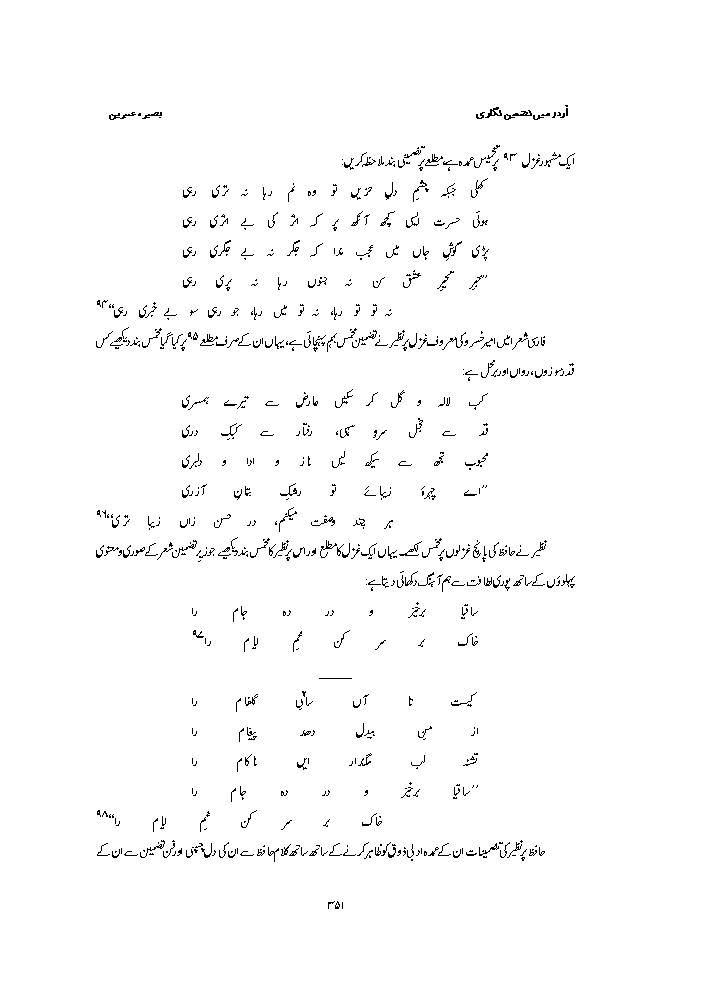 اُردو میں تضمین نگاری
بصیرہ عنبرین
ایک مشہور غزل ۹۳ پر تخمیس عمدہ ہے، مطلعے پر تضمینی بند ملاحظہ کریں:
کھلی جبکہ چشمِ دلِ حزیں تو وہ نم رہا نہ تری رہی
ہوئی حسرت ایسی کچھ آنکھ پر کہ اثر کی بے اثری رہی
پڑی گوشِ جاں میں عجب ندا کہ جگر نہ بے جگری رہی
’’خبرِ تحیرِ عشق سن نہ جنوں رہا نہ پری رہی
نہ تو تو رہا، نہ تو میں رہا، جو رہی سو بے خبری رہی‘‘۹۴
فارسی شعرا میں امیر خسرو کی معروف غزل پر نظیر نے تضمینِ مخمس بہم پہنچائی ہے، یہاں ان کے صرف مطلعے ۹۵ پر کیا گیا مخمس بند دیکھیے کس
قدر موزوں، رواں اور برمحل ہے:
کب لالہ و گل کر سکیں عارض سے تیرے ہمسری
قد سے خجل سرو سہی، رفتار سے کبکِ دری
محبوب تجھ سے سیکھ لیں ناز و ادا و دلبری
’’اے چہرۂ زیبائے تو رشکِ بتانِ آزری
ہر چند وصفت میکنم، در حسن زاں زیبا تری‘‘۹۶
نظیر نے حافظ کی پانچ غزلوں پر مخمس لکھے۔ یہاں ایک غزل کا مطلع اور اس پر نظیر کا مخمس بند دیکھیے جو زیرِ تضمین شعر کے صوری و معنوی
پہلوؤں کے ساتھ پوری لطافت سے ہم آہنگ دکھائی دیتا ہے:
ساقیا برخیز و در دہ جام را
خاک بر سر کن غمِ ایام را۹۷
کیست تا آں ساقیِ گلفام را
از منِ بیدل دھد پیغام را
تشنہ لب مگذار ایں ناکام را
’’ساقیا برخیز و در دہ جام را
خاک بر سر کن غمِ ایام را‘‘۹۸
حافظ پر نظیر کی تضمینات ان کے عمدہ ادبی ذوق کو ظاہر کرنے کے ساتھ ساتھ کلامِ حافظ سے ان کی دل چسپی اور فنِ تضمین سے ان کے
۳۵۱